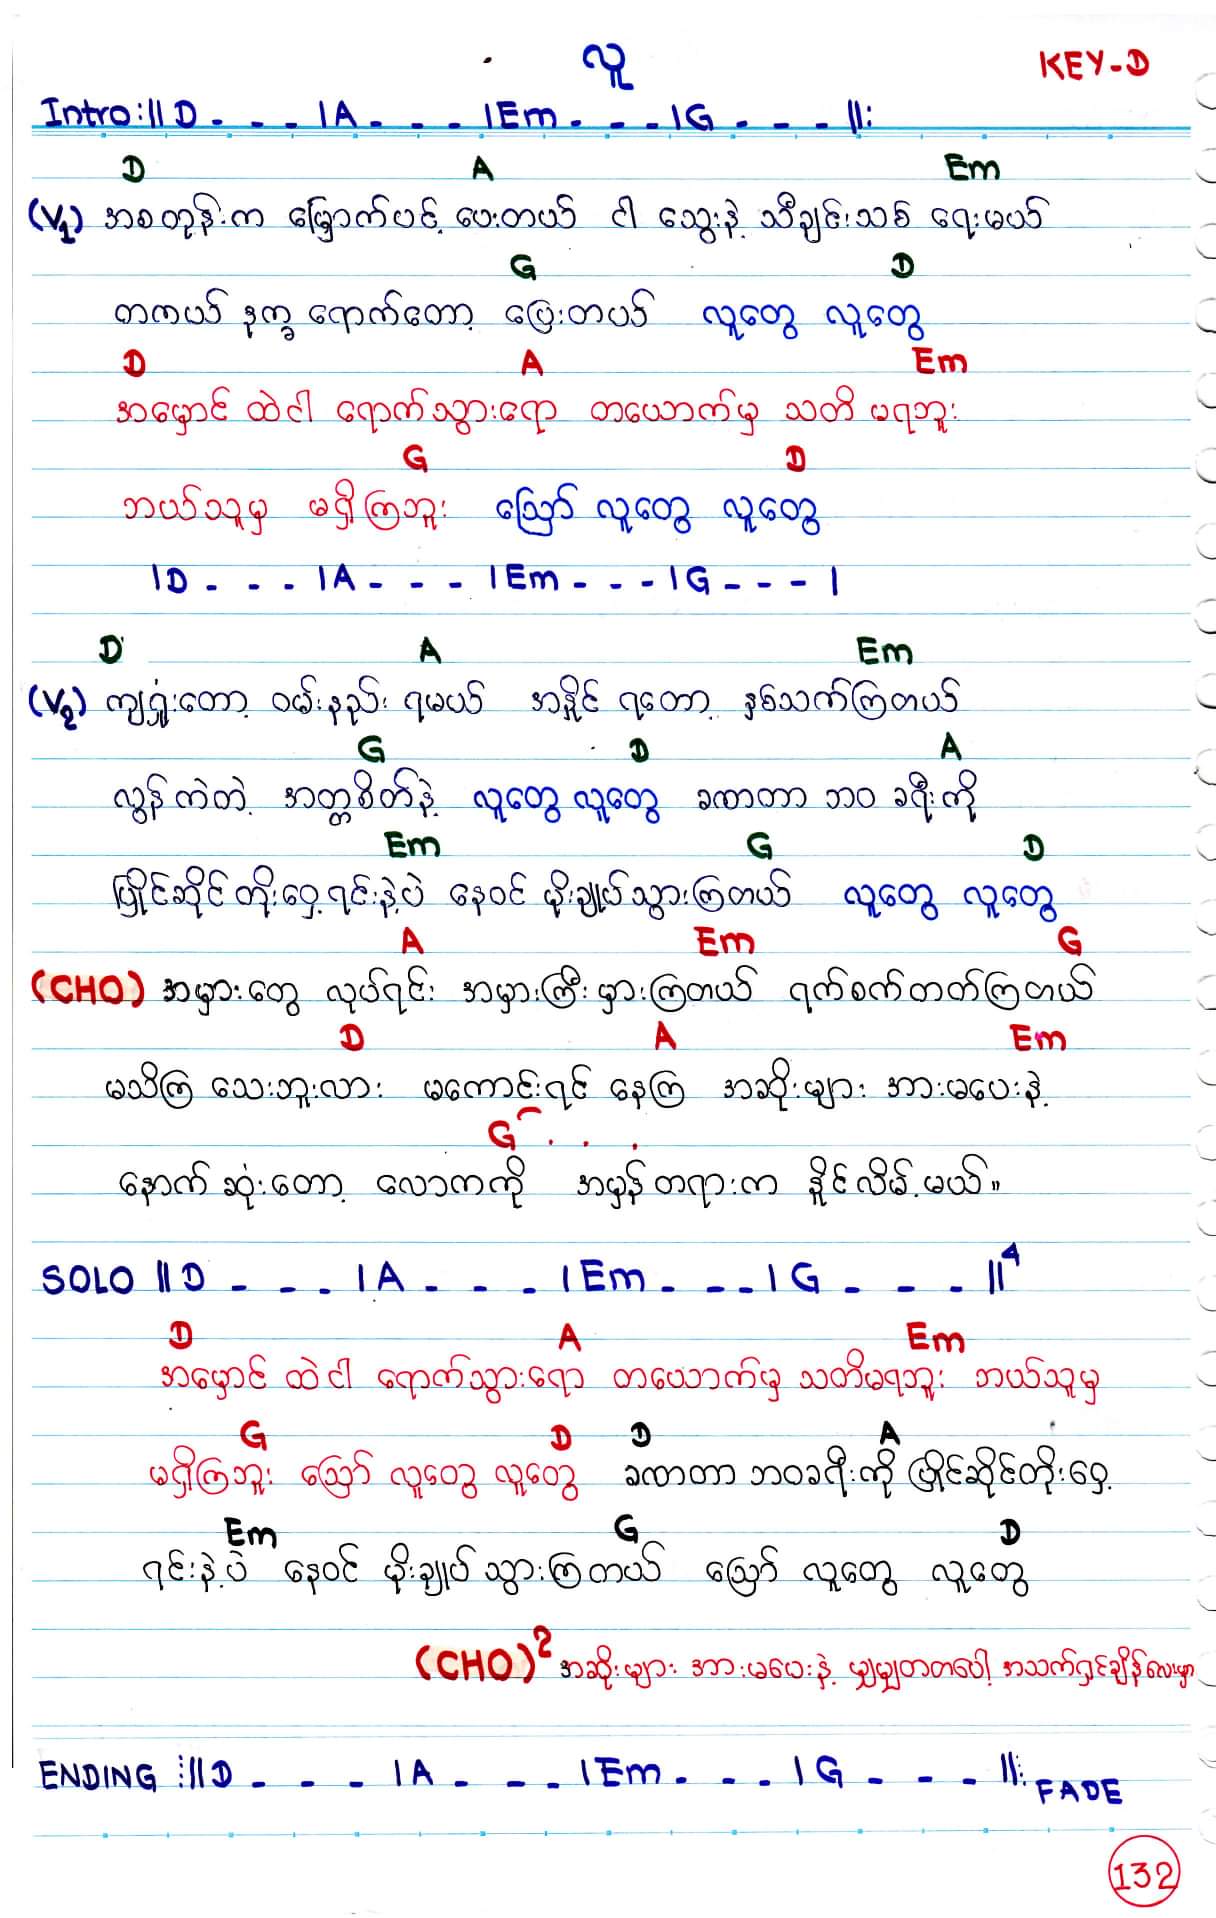 လူ
KEY-D
Intro :|| D - - - | A - - - | Em - - - | G - - - ||:
D A Em
(V1) အစတုန်းက မြှောက်ပင့် ပေးတယ် ငါ သွေးနဲ့ သီချင်းသစ် ရေးမယ်
G D
တကယ် ဒုက္ခ ရောက်တော့ ပြေးတယ် လူတွေ လူတွေ
D A Em
အမှောင် ထဲငါ ရောက်သွားရော တယောက်မှ သတိ မရဘူး
G D
ဘယ်သူမှ မရှိကြဘူး ဩော် လူတွေ လူတွေ
| D - - - | A - - - | Em - - - | G - - - |
D A Em
(V2) ကျရှုံးတော့ ဝမ်းနည်း ရမယ် အနိုင် ရတော့ နှစ်သက်ကြတယ်
G D A
လွန်ကဲတဲ့ အတ္တစိတ်နဲ့ လူတွေ လူတွေ ခဏတာ ဘဝ ခရီးကို
Em G D
ပြိုင်ဆိုင် တိုးဝှေ့ ရင်းနဲ့ပဲ နေဝင် မိုးချုပ်သွားကြတယ် လူတွေ လူတွေ
A Em G
(CHO) အမှားတွေ လုပ်ရင်း အမှားကြီး မှားကြတယ် ရက်စက်တတ်ကြတယ်
D A Em
မသိကြ သေးဘူးလား မကောင်းရင် နေကြ အဆိုးများ အားမပေးနဲ့
G . . .
နောက်ဆုံးတော့ လောကကို အမှန်တရားက နိုင်လိမ့်မယ်။
SOLO || D - - - | A - - - | Em - - - | G - - - ||4
D A Em
အမှောင် ထဲငါ ရောက်သွားရော တယောက်မှ သတိမရဘူး ဘယ်သူမှ
G D D A
မရှိကြဘူး ဩော် လူတွေ လူတွေ ခဏတာ ဘဝခရီးကို ပြိုင်ဆိုင်တိုးဝှေ့
Em G D
ရင်းနဲ့ပဲ နေဝင် မိုးချုပ် သွားကြတယ် ဩော် လူတွေ လူတွေ
(CHO)2 အဆိုးများ အားမပေးနဲ့ မျှမျှတတပေါ့ အသက်ရှင်ချိန်လေးမှာ
ENDING :|| D - - - | A - - - | Em - - - | G - - - ||: FADE
132